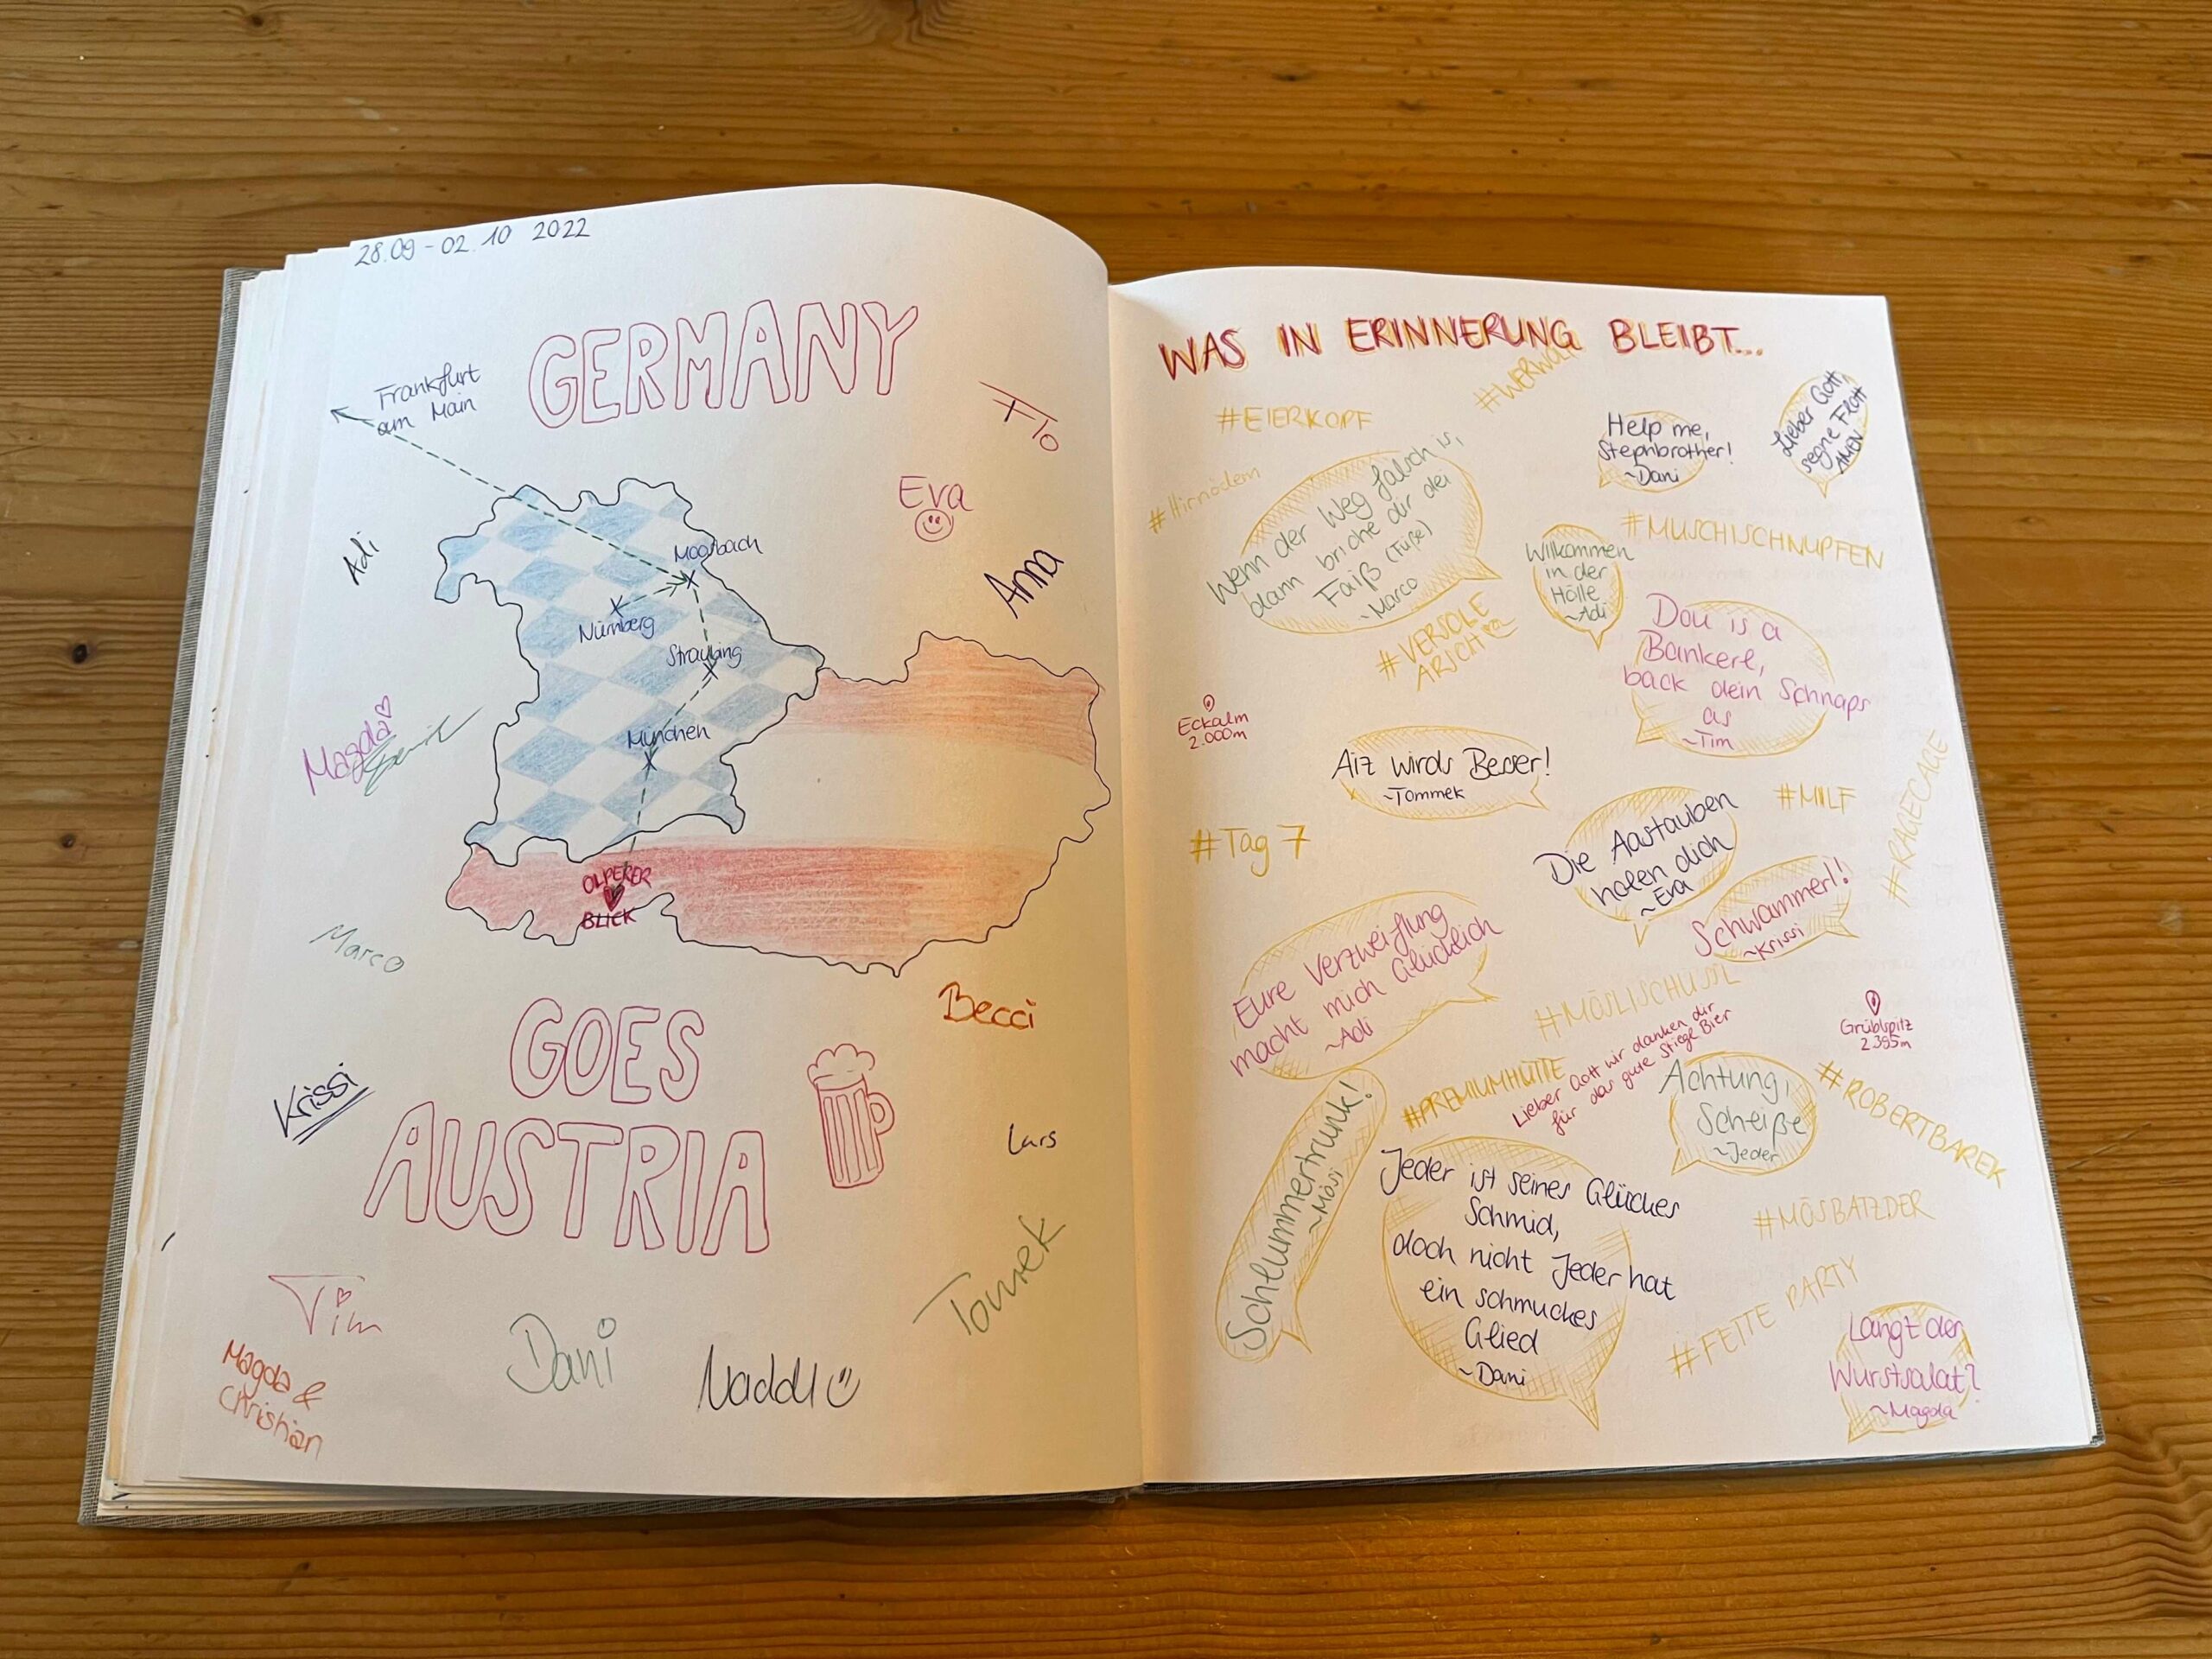 28.09 - 02.10 2022
GERMANY
Frankfurt
am Main
Flo
Eva
Adi
Moosbach
Anna
Nürnberg
Straubing
Magda
München
OLPERER
BLICK
Marco
GOES
AUSTRIA
Becci
Krissi
Lars
Tim
Tomek
Magda &
Christian
Dani
Naddl
WAS IN ERINNERUNG BLEIBT...
#EIERKOPF
#WERWOLF
Help me,
Stephbrother!
~Dani
Lieber Gott
segne Flott
AMEN
#Hirnödem
Wenn der Weg falsch is,
dann briche dir dei
Faiß (Füße)
~Marco
#MUSCHISCHNUPFEN
Wilkommen
in der
Hölle
~Adi
#VERSOLE
ARSCH
Dou is a
Bankerl,
back dein Schnaps
as
~Tim
Eckalm
2.000m
Aiz wirds Besser!
~Tommek
#MILF
#RAGECAGE
#Tag 7
Die Aastauben
holen dich
~Eva
Schwammerl!
~Krissi
Eure Verzweiflung
macht mich Glücklich
~Adi
#MÖSLISCHÜSSL
Grüblspitz
2.395m
#PREMIUMHÜTTE
Lieber Gott wir danken dir
für das gute Stiegl Bier
Achtung,
Scheiße
~Jeder
#ROBERTBAREK
Schlummertrunk!
~Mösi
Jeder ist seines Glückes
Schmid,
doch nicht Jeder hat
ein schmuckes
Glied
~Dani
#MÖSBATZDER
#FETTE PARTY
Langt der
Wurstsalat?
~Magda